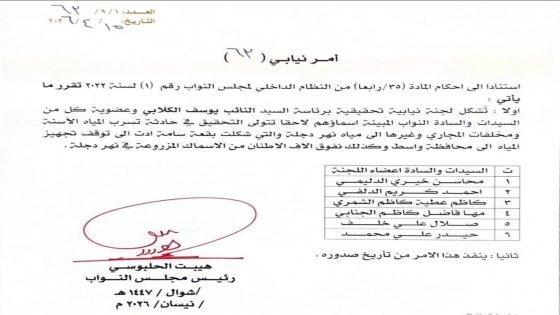 العدد: ٦٢/٩/١
التاريخ: ٢٠٢٦/٤/١٥
أمر نيابي (٦٢)
استنادا الى احكام المادة (٣٥/رابعا) من النظام الداخلي لمجلس النواب رقم (١) لسنة ٢٠٢٢ تقرر ما
يأتي :
اولا : تُشكل لجنة نيابية تحقيقية برئاسة السيد النائب يوسف الكلابي وعضوية كل من
السيدات والسادة النواب المبينة اسماؤهم لاحقا تتولى التحقيق في حادثة تسرب المياه الآسنة
ومخلفات المجاري وغيرها الى مياه نهر دجلة والتي شكلت بقعة سامة ادت الى توقف تجهيز
المياه الى محافظة واسط وكذلك نفوق الاف الاطنان من الاسماك المزروعة في نهر دجلة .
ت السيدات والسادة اعضاء اللجنة
١ محاسن خيري الدليمي
٢ احمد كريم الدلفي
٣ كاظم عطية كاظم الشمري
٤ مها فاضل كاظم الجنابي
٥ صلال علي خلف
٦ حيدر علي محمد
ثانيا : ينفذ هذا الامر من تأريخ صدوره .
هيبت الحلبوسي
رئيس مجلس النواب
/شوال/ ١٤٤٧ هـ
/نيسان/ ٢٠٢٦ م